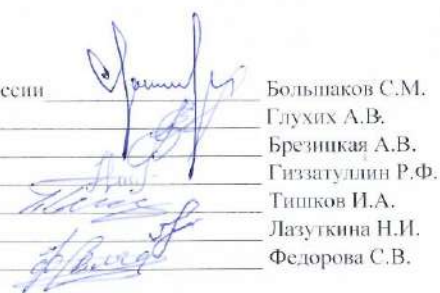 ссии Большаков С.М.
Глухих А.В.
Брезицкая А.В.
Гиззатуллин Р.Ф.
Тишков И.А.
Лазуткина Н.И.
Федорова С.В.